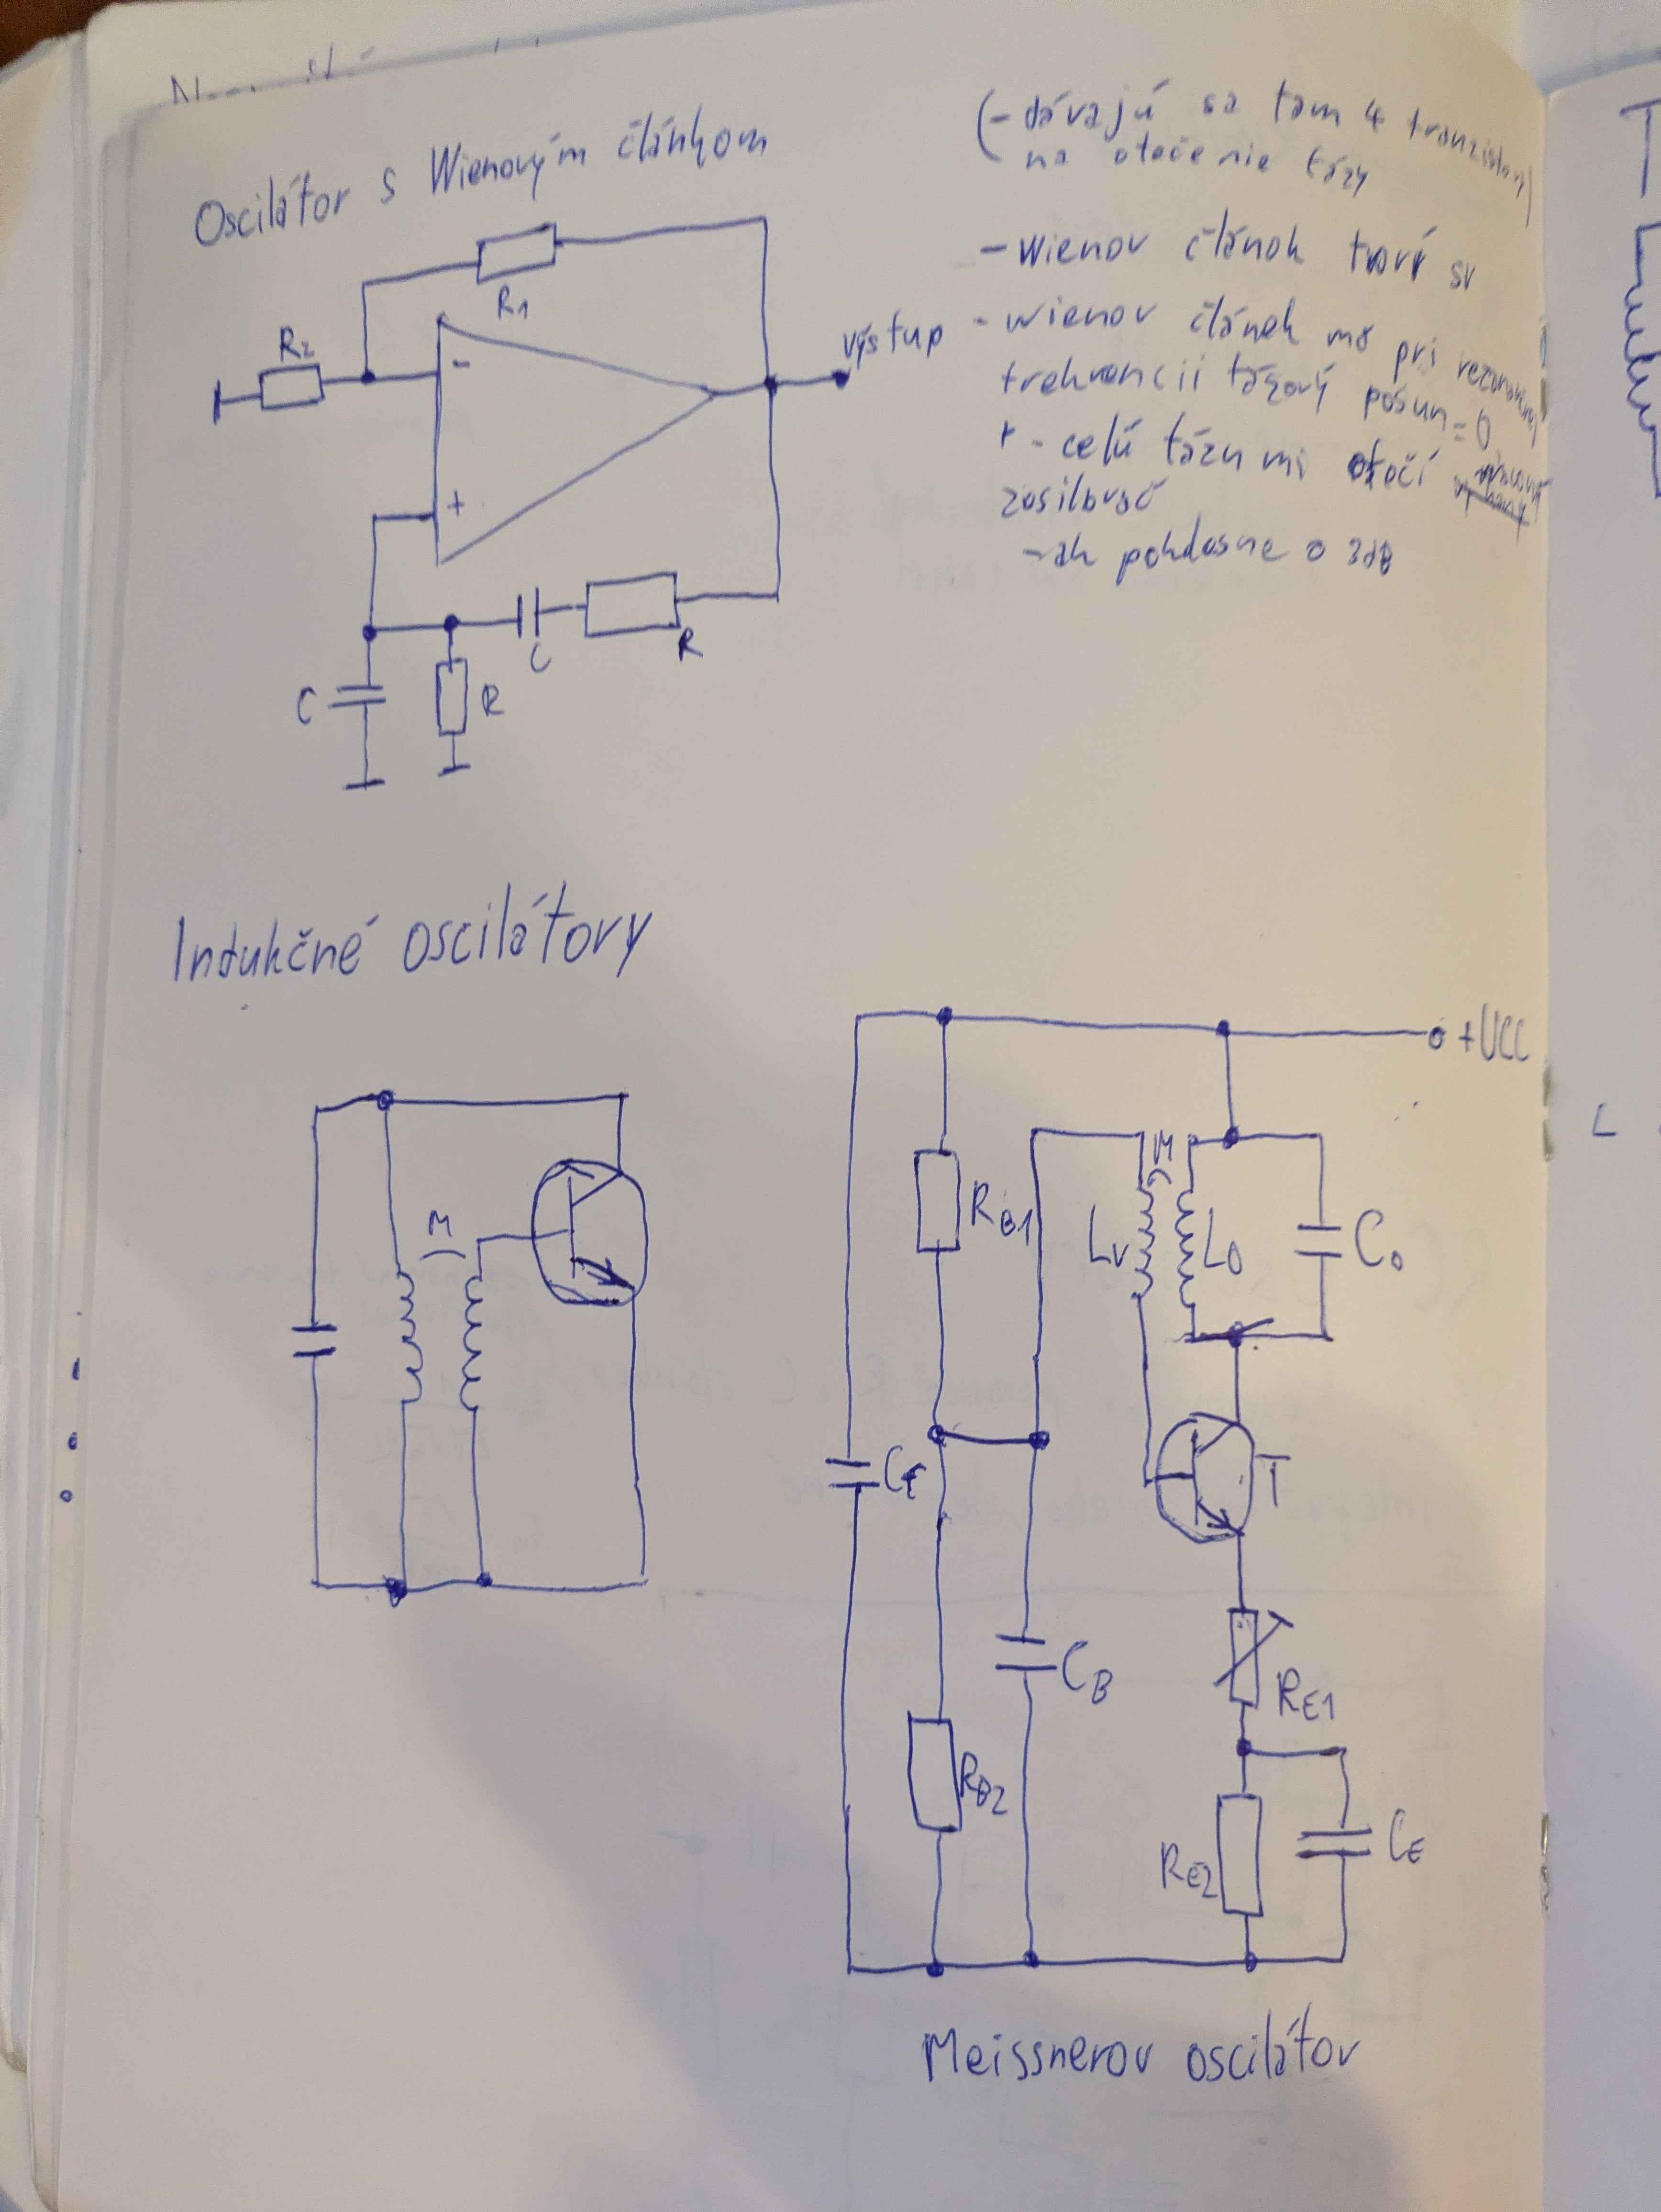 Oscilátor s Wienovým článkom
(- dávajú sa tam 4 tranzistory)
na otočenie fázy
- Wienov článok tvorí sv
- wienov článek má pri rezonančnej
frekvencii fázový posun = 0
- celú fázu mi otočí
zosilovač
- ak pohlasne o 3dB
R1
R2
-
+
výstup
C
R
C
R
Indukčné oscilátory
M
+UCC
RB1
M
LV
LO
CO
CF
T
CB
RE1
RB2
RE2
CE
Meissnerov oscilátor
L